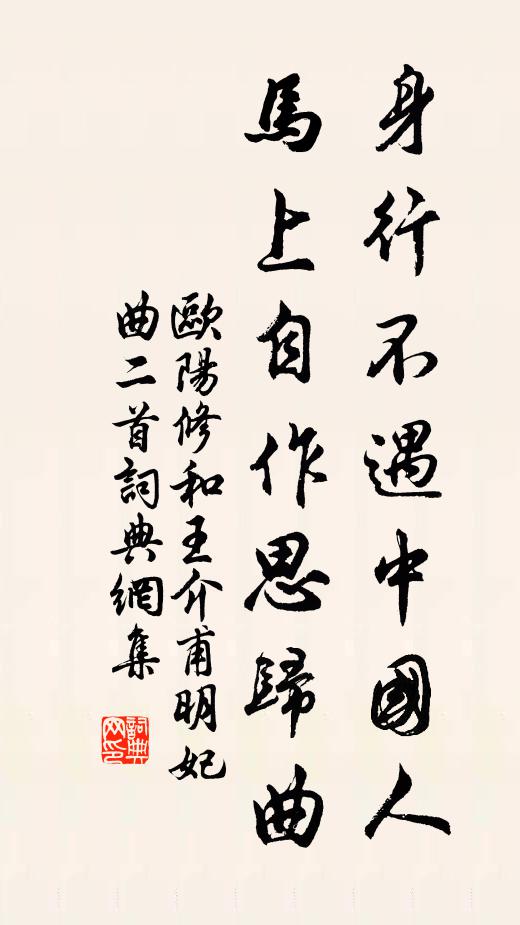 身行不遇中國人
馬上自作思歸曲
歐陽修和王介甫明妃
曲二首詞典網集
詞典
网印